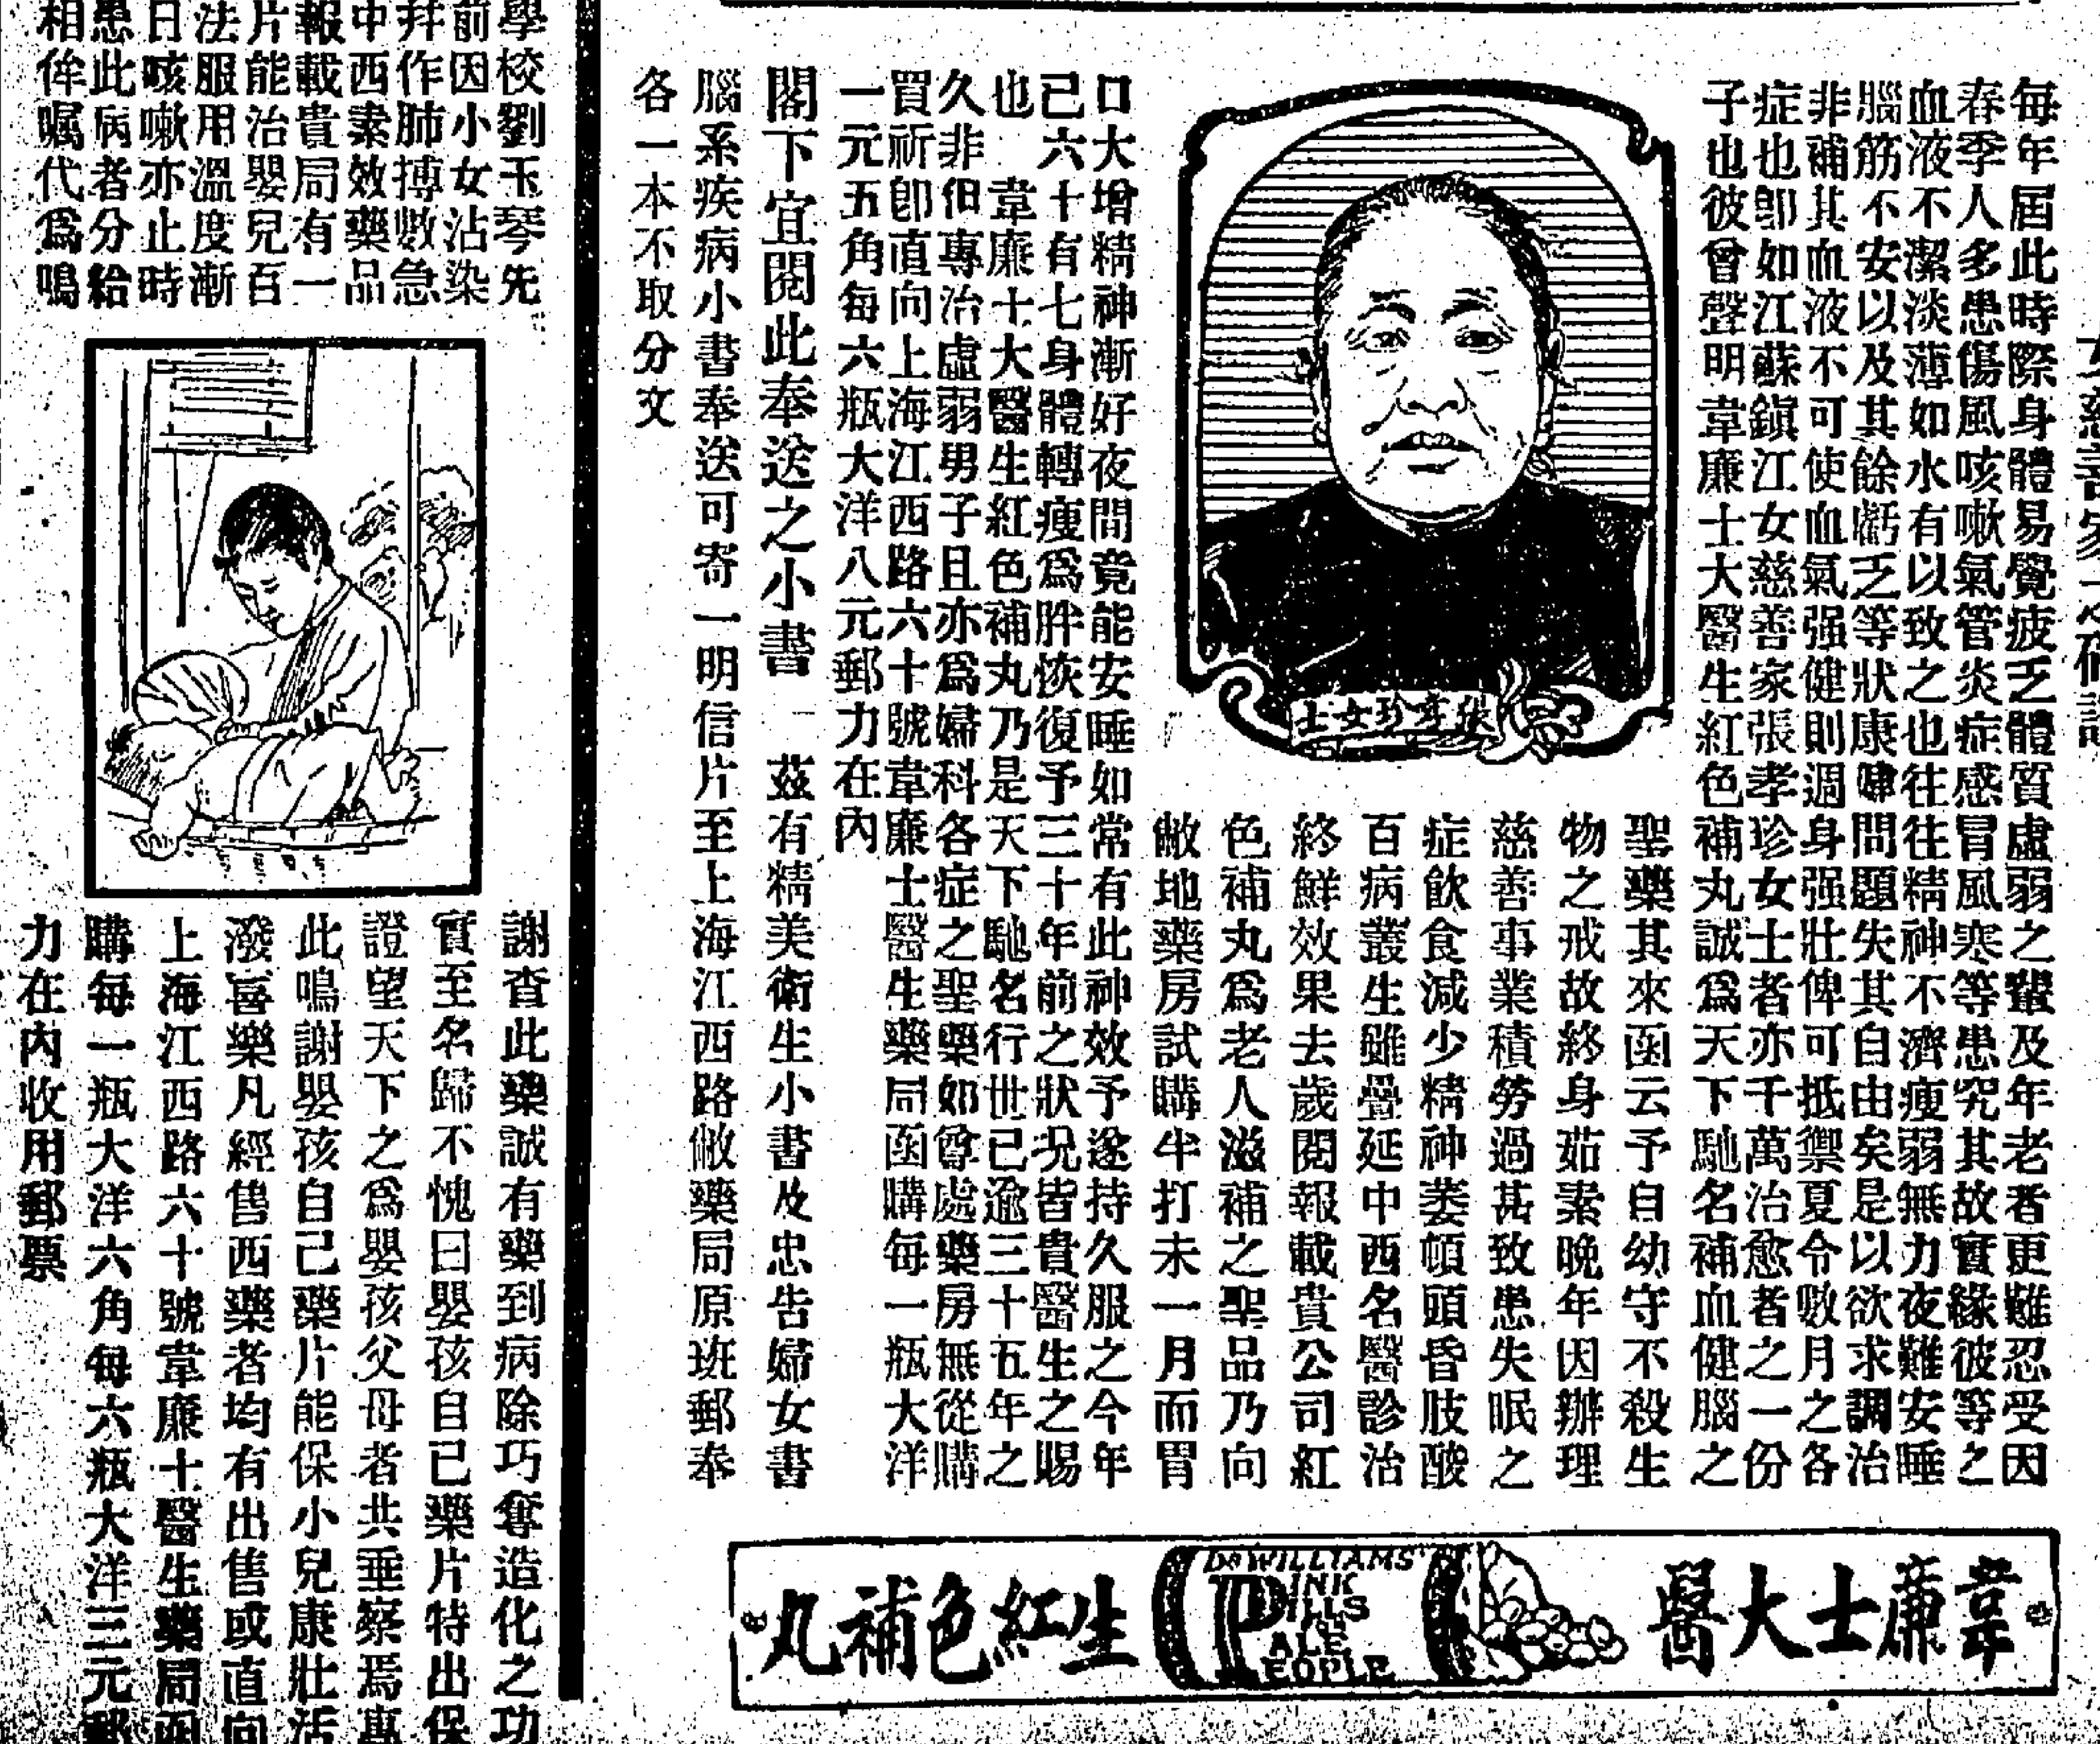 每年屆此時際身體易覺疲乏體質虛弱之輩及年老者更難忍受因
春季人多患傷風咳嗽氣管炎症感冒風寒等患究其故實緣彼等之
血液不潔淡薄如水有以致之也往往精神不濟瘦弱無力夜難安睡
腦筋不安以及其餘虧乏等狀康健問題失其自由矣是以欲求調治
非補其血液不可使血氣强健則週身强壯俾可抵禦夏令數月之各
症也卽如江蘇鎭江女慈善家張孝珍女士者亦千萬治愈者之一份
子也彼曾聲明韋廉士大醫生紅色補丸誠爲天下馳名補血健腦之
聖藥其來函云予自幼守不殺生
物之戒故終身茹素晚年因辦理
慈善事業積勞過甚致患失眠之
症飲食減少精神萎頓頭昏肢酸
百病叢生雖疊延中西名醫診治
終鮮效果去歲閱報載貴公司紅
色補丸爲老人滋補之聖品乃向
敝地藥房試購半打未一月而胃
口大增精神漸好夜間竟能安睡如常有此神效予遂持久服之今年
已六十有七身體轉瘦爲胖恢復予三十年前之狀况皆貴醫生之賜
也　韋廉士大醫生紅色補丸乃是天下馳名行世已逾三十五年之
久非但專治虛弱男子且亦爲婦科各症之聖藥如尊處藥房無從購
買祈卽直向上海江西路六十號韋廉士醫生藥局函購每一瓶大洋
一元五角每六瓶大洋八元郵力在內
閣下宜閱此奉送之小書　茲有精美衛生小書及忠告婦女書
腦系疾病小書奉送可寄一明信片至上海江西路敝藥局原班郵奉
各一本不取分文
張孝珍女士
韋廉士大醫
DR WILLIAMS'
PINK
PILLS
FOR
PALE
PEOPLE
生紅色補丸
學校劉玉琴先
前因小女沾染
拜作肺搏數急
中西素效藥品
報載貴局有一
片能治嬰兒百
法服用溫度漸
日咳嗽亦止時
患此病者分給
相侔囑代爲鳴
謝查此藥誠有藥到病除巧奪造化之功
實至名歸不愧曰嬰孩自已藥片特出保
證望天下之爲嬰孩父母者共垂察焉專
此鳴謝嬰孩自己藥片能保小兒康壯活
潑喜樂凡經售西藥者均有出售或直向
上海江西路六十號韋廉士醫生藥局函
購每一瓶大洋六角每六瓶大洋三元郵
力在內收用郵票